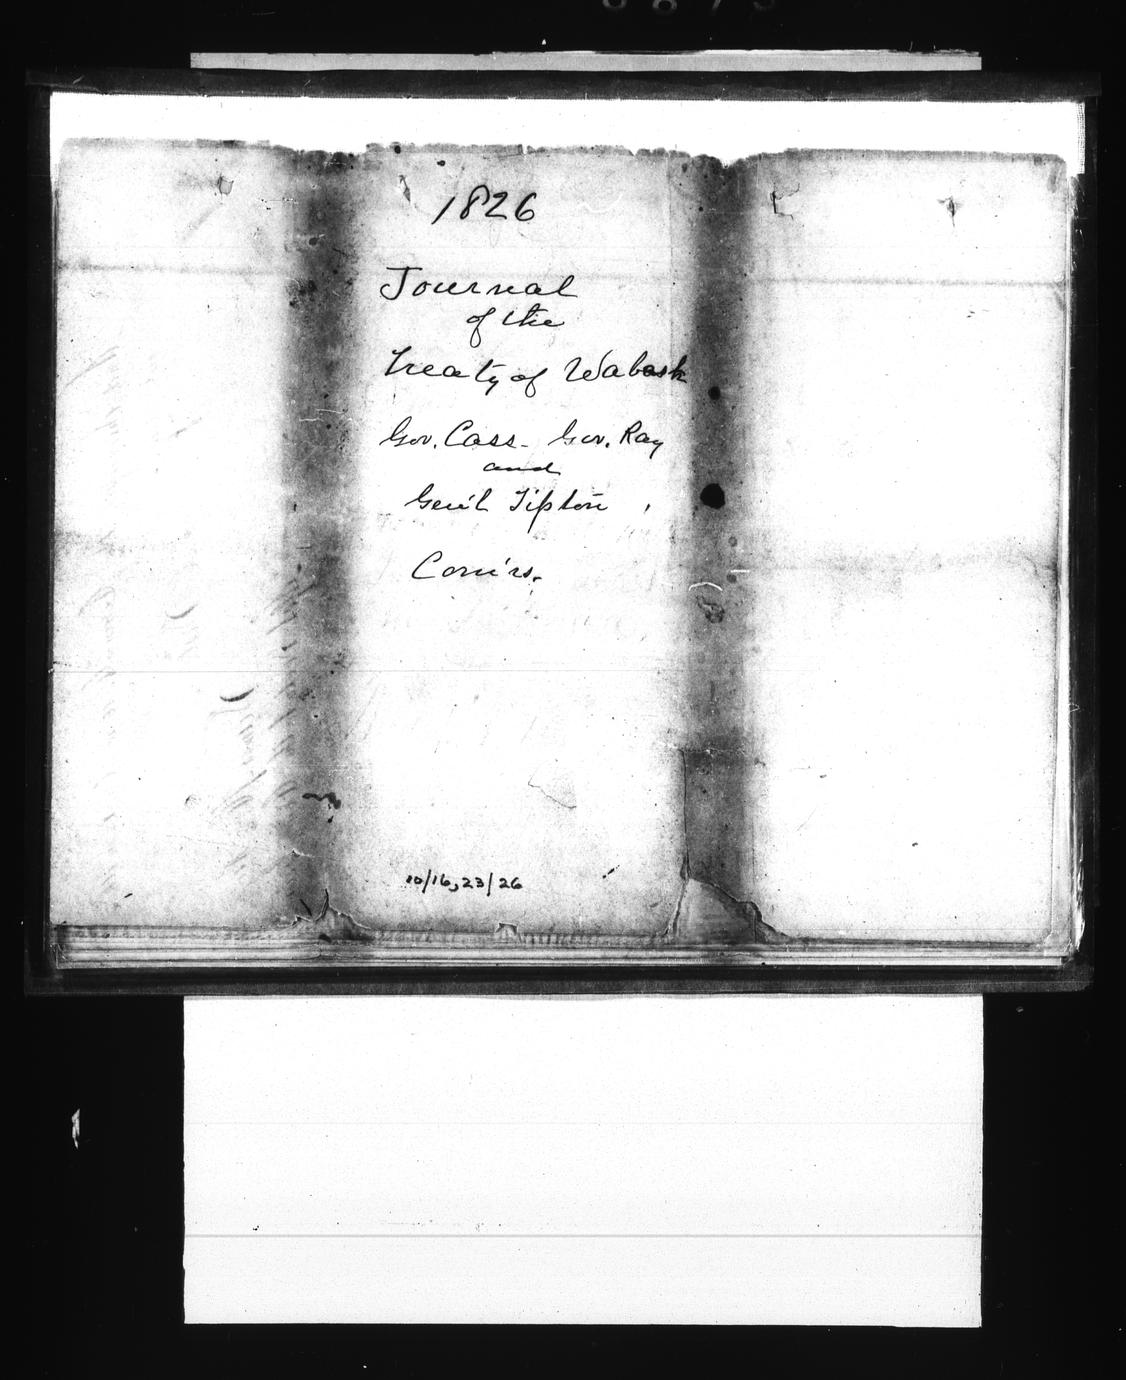 1826
Journal
of the
Treaty of Wabash
Gov. Cass. Gov. Ray
and
Gen'l Tipton
Com'rs.
10/16,23/26